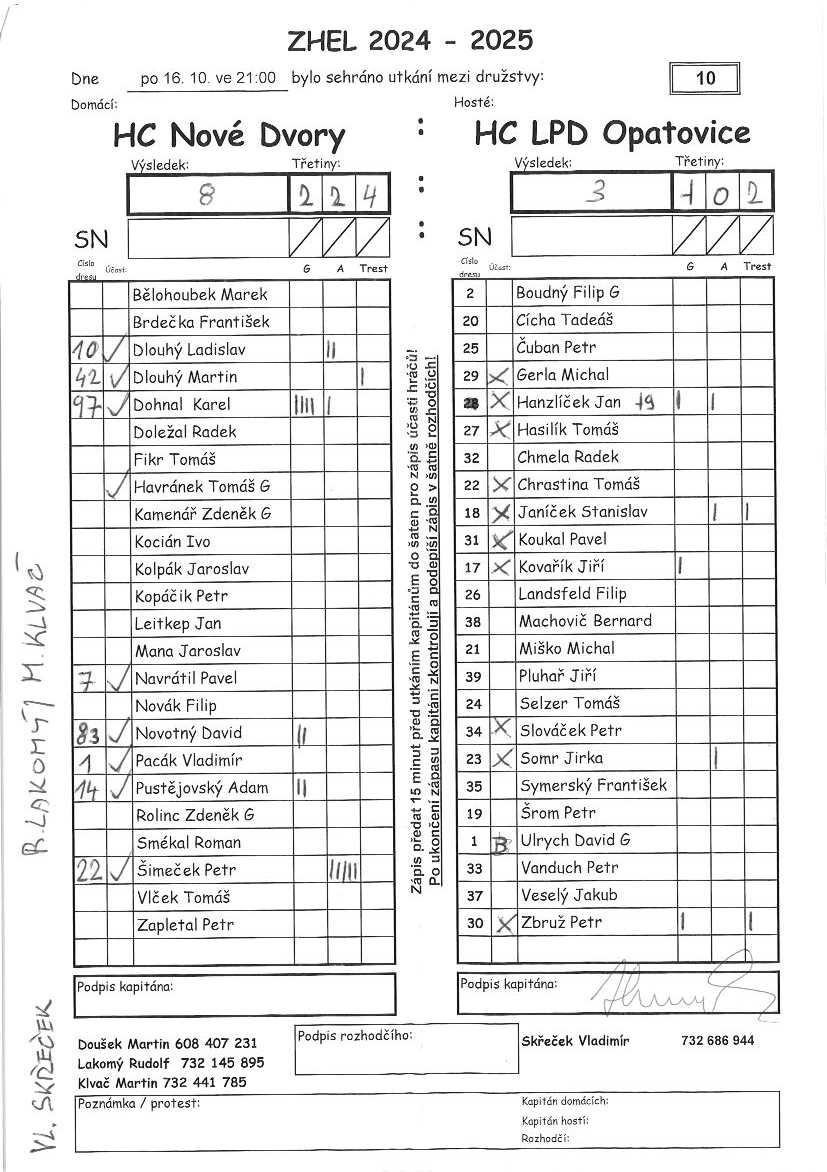 ZHEL 2024 - 2025
Dne po 16. 10. ve 21:00 bylo sehráno utkání mezi družstvy: 10
Domácí: Hosté:
HC Nové Dvory : HC LPD Opatovice
Výsledek: Třetiny: Výsledek: Třetiny:
8 2 2 4 : 3 1 0 2
SN : SN
Číslo dresu Účast: G A Trest Číslo dresu Účast: G A Trest
Bělohoubek Marek
Brdečka František
10 ✓ Dlouhý Ladislav ||
42 ✓ Dlouhý Martin |
97 ✓ Dohnal Karel |||| |
Doležal Radek
Fikr Tomáš
✓ Havránek Tomáš G
Kamenář Zdeněk G
Kocián Ivo
Kolpák Jaroslav
Kopáčik Petr
Leitkep Jan
Mana Jaroslav
7 ✓ Navrátil Pavel
Novák Filip
83 ✓ Novotný David ||
1 ✓ Pacák Vladimír
14 ✓ Pustějovský Adam ||
Rolinc Zdeněk G
Smékal Roman
22 ✓ Šimeček Petr |||||
Vlček Tomáš
Zapletal Petr
Podpis kapitána:
Zápis předat 15 minut před utkáním kapitánům do šaten pro zápis účasti hráčů!
Po ukončení zápasu kapitáni zkontrolují a podepíší zápis v šatně rozhodčích!
2 Boudný Filip G
20 Cícha Tadeáš
25 Čuban Petr
29 X Gerla Michal
28 X Hanzlíček Jan 19 | |
27 X Hasilík Tomáš
32 Chmela Radek
22 X Chrastina Tomáš
18 X Janíček Stanislav | |
31 X Koukal Pavel
17 X Kovařík Jiří |
26 Landsfeld Filip
38 Machovič Bernard
21 Miško Michal
39 Pluhař Jiří
24 Selzer Tomáš
34 X Slováček Petr
23 X Somr Jirka |
35 Symerský František
19 Šrom Petr
1 B Ulrych David G
33 Vanduch Petr
37 Veselý Jakub
30 X Zbruž Petr | |
Podpis kapitána:
R. LAKOMÝ / M. KLVAČ
VL. SKŘEČEK
Doušek Martin 608 407 231
Lakomý Rudolf 732 145 895
Klvač Martin 732 441 785
Podpis rozhodčího:
Skřeček Vladimír 732 686 944
Poznámka / protest:
Kapitán domácích:
Kapitán hostí:
Rozhodčí: